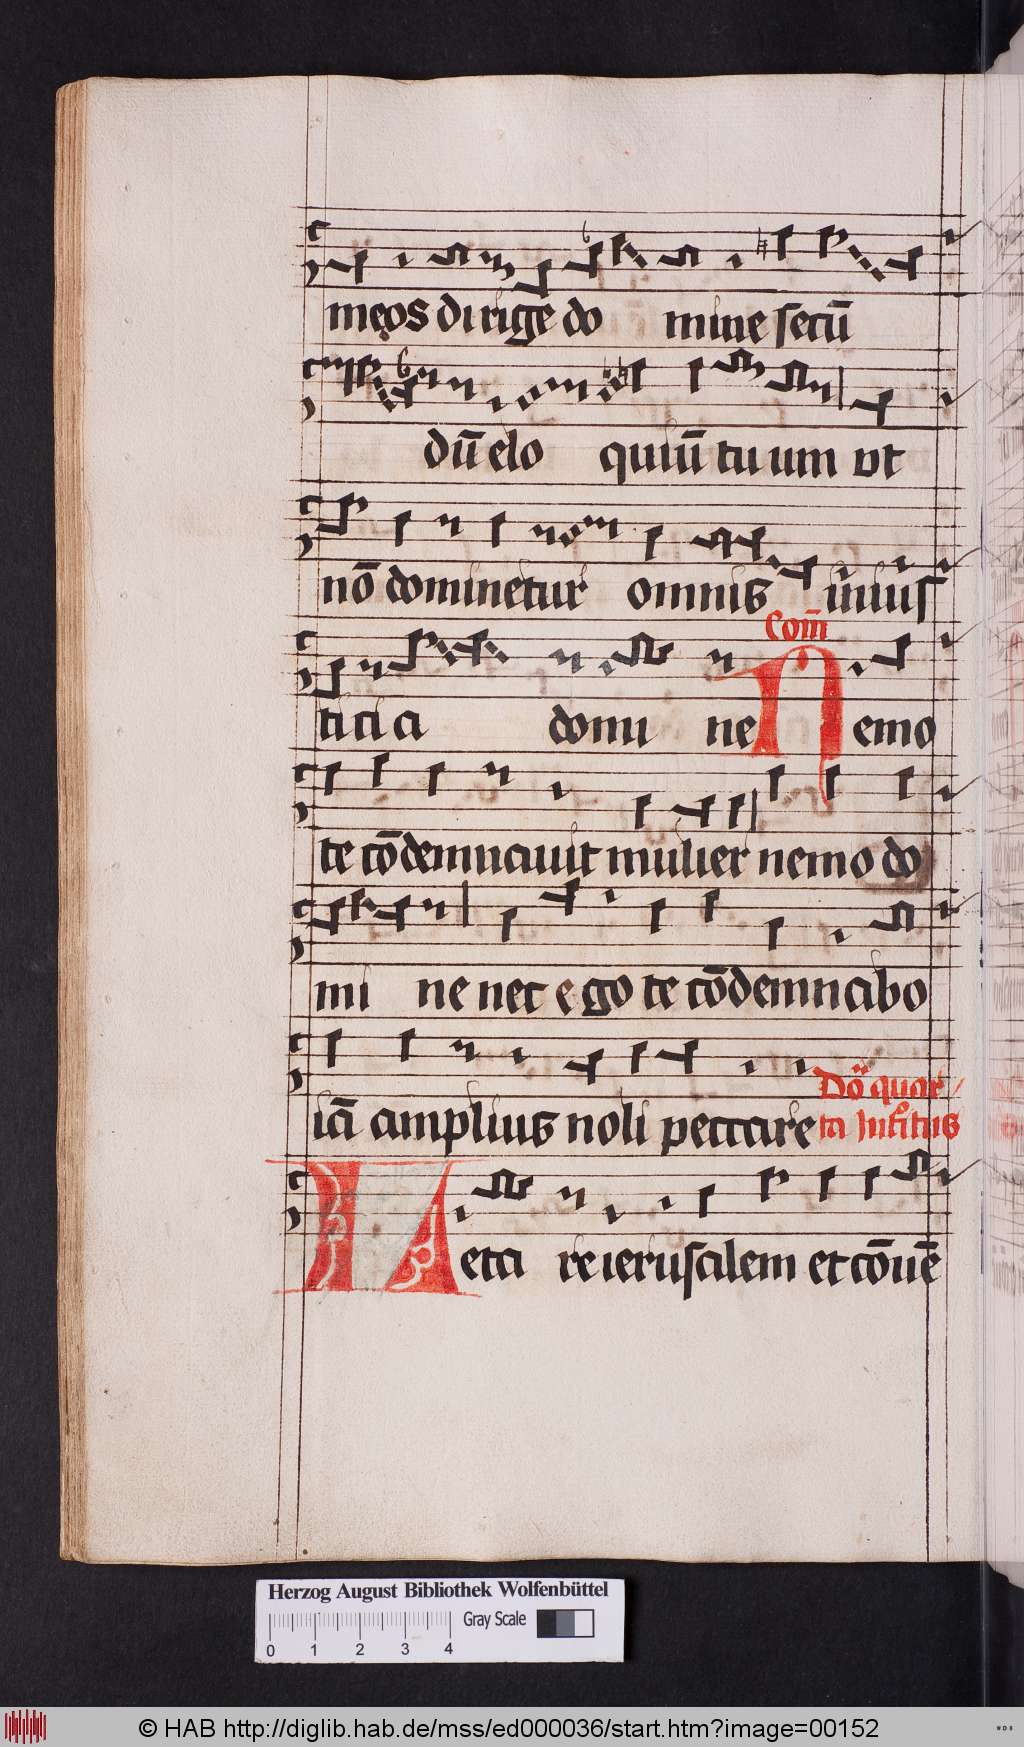 męos dirige do mine secū
dū elo quiū tu um vt
nō dominetur omnis iniusſ
Com̄
ticia domi ne Nemo
te cōdemnavit mulier nemo do
mi ne nec ego te cōdemnabo
iā amplius noli peccare
Dō quar/
ta Int̄itus
Leta re ierusalem et cōuē
Herzog August Bibliothek Wolfenbüttel
Gray Scale
0 1 2 3 4
© HAB http://diglib.hab.de/mss/ed000036/start.htm?image=00152